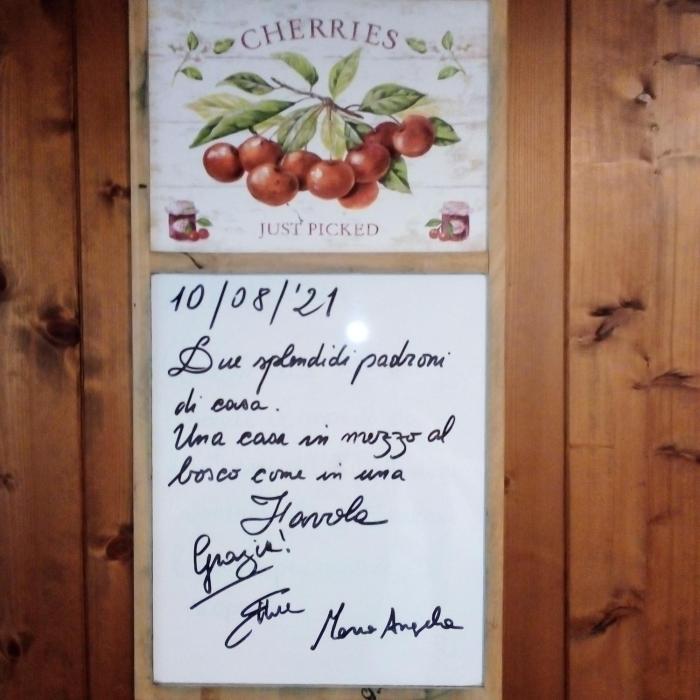 CHERRIES
JUST PICKED
10/08/'21
Due splendidi padroni
di casa.
Una casa in mezzo al
bosco come in una
Favola
Grazie!
Ettore
Maria Angela